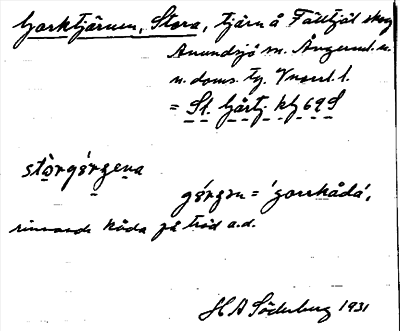 Gorktjärnen, Stora, tjärn å Tälltjäl skog
Anundsjö sn. Ångerml. n.
n. doms. tg. Vnorrl. l.
= St. Görtj. kbl 69 S
stòrgǿrgena
gǿrgɐn = 'gorrkåda',
rinnande kåda på träd a.d.
H A Söderberg 1931